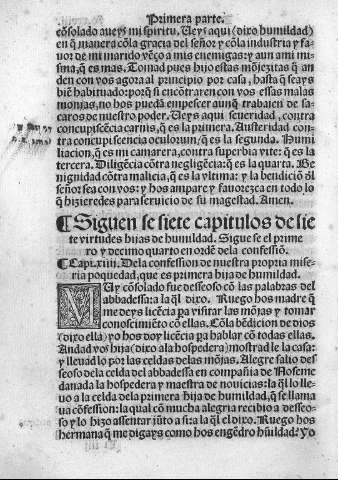 Primera parte.
cõsolado aueys mi spiritu. Ueys aqui (dixo humildad)
en q̃ manera cõla gracia del señor y cõla industria y fa-
uor de mi marido vẽço a mis enemigas: y aun ami mi-
sma, q̃ es mas. Tomad pues hijo estas mõjezitas q̃ an
den con vos agora al principio por casa, hasta q̃ seays
biẽ habituado: porq̃ si encõtraren con vos essas malas
monias, no hos puedã empescer aunq̃ trabajen de sa-
caros de nuestro poder. Ueys aqui seueridad, contra
concupiscẽcia carnis, q̃ es la primera. Austeridad con
tra concupiscencia oculorum, q̃ es la segunda. Humi
liacion, q̃ es mi camarera, contra superbia vite: q̃ es la
tercera. Diligẽcia cõtra negligẽcia: q̃ es la quarta. Be
nignidad cõtra malicia, q̃ es la vltima: y la bendiciõ ðl
señor sea con vos: y hos ampare y fauorezca en todo lo
q̃ hizieredes para seruicio de su magestad. Amen.
¶ Siguen se siete capitulos de sie
te virtudes hijas de humildad. Sigue se el prime
ro y decimo quarto en ordẽ de la confessiõ.
¶ Capi. xiiij. De la confession de nuestra propria mise
ria y poquedad, que es primera hija de humildad.
MUy cõsolado fue desseoso cõ las palabras del
abbadessa: a la q̃l dixo. Ruego hos madre q̃
me deys licẽcia pa visitar las mõjas y tomar
conoscimiẽto cõ ellas. Cõla bẽdicion de dios
(dixo ella) yo hos doy licẽcia pa hablar cõ todas ellas.
Andad vos hija (dixo a la hospedera) mostrad le la casa:
y lleuad lo por las celdas de las mõjas. Alegre salio des
seoso dela celda del abbadessa en compañia de Noseme
danada la hospedera y maestra de nouicias: la q̃l lo lle-
uo a la celda de la primera hija de humildad, q̃ se llama
ua cõfession: la qual cõ mucha alegria recibio a desseo-
so y lo hizo assentar jũto a si: a la q̃l el dixo. Ruego hos
hermana q̃ me digays como hos engẽdro hũildad? Yo